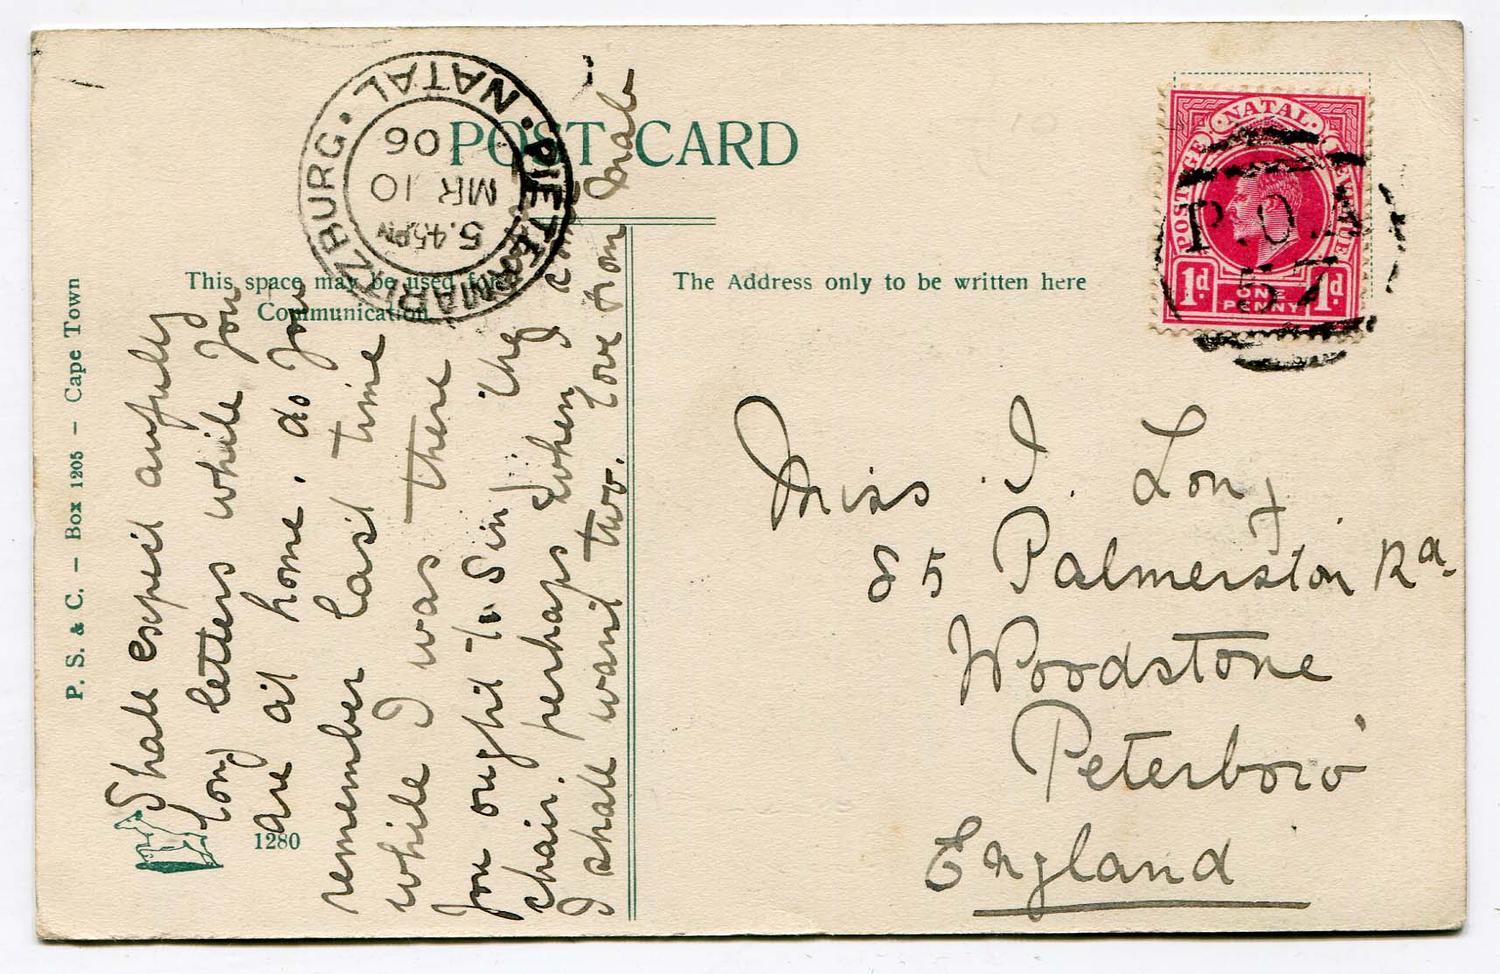 POST CARD
This space may be used for
Communication.
The Address only to be written here
P. S. & C. – Box 1205 – Cape Town
1280
PIETERMARITZBURG · NATAL ·
5.45PM
MR 10
06
NATAL
POSTAGE REVENUE
1d ONE PENNY 1d
P.O.A
57
Shall expect awfully
long letters while you
are at home. do you
remember last time
while I was there
you ought to sin' the
chair. perhaps when I
I shall want two. Love from Mab
Miss I. Long
85 Palmerston Rd.
Woodstone
Peterboro'
England